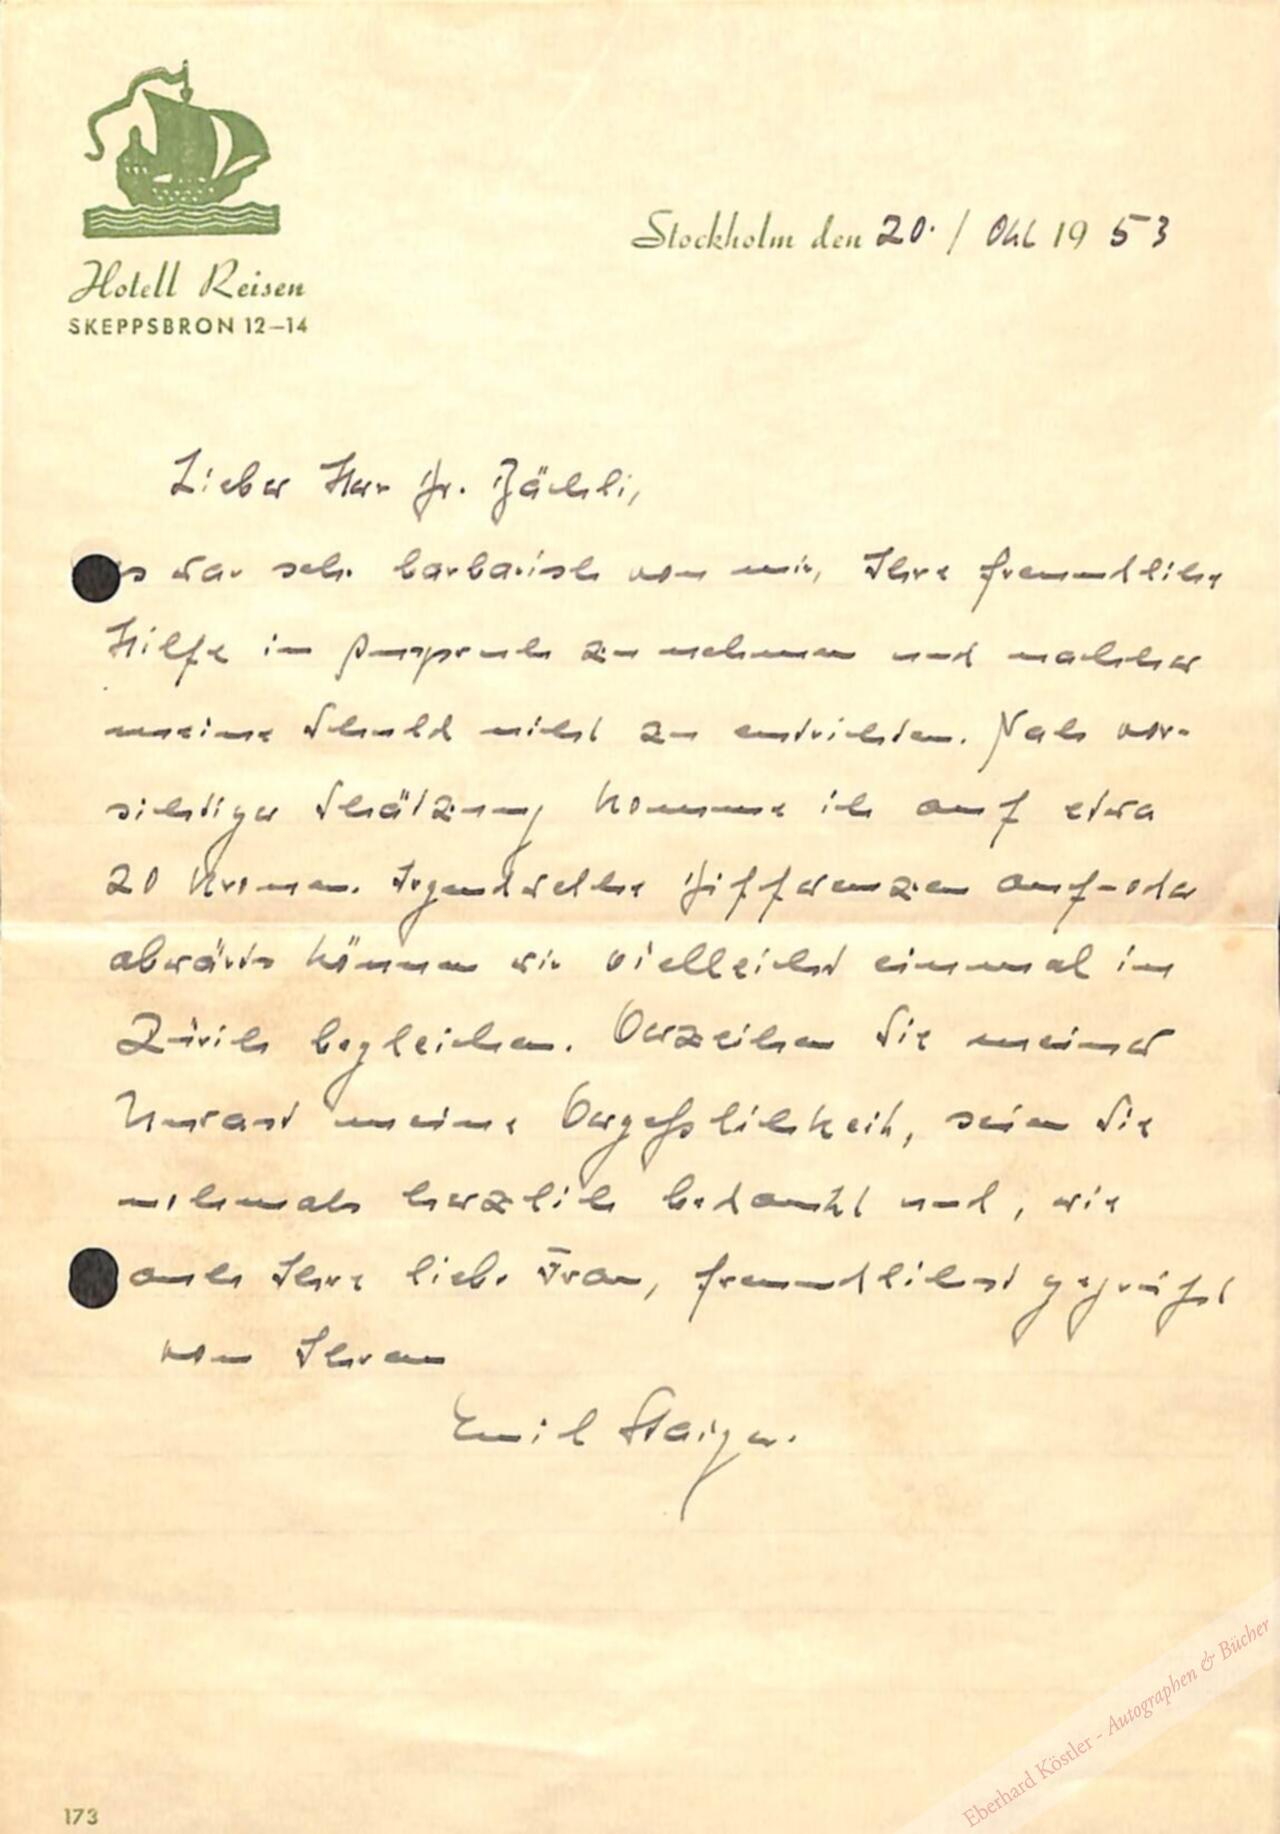 Hotell Reisen
SKEPPSBRON 12–14
Stockholm den 20. / Okt 19 53
Lieber Herr Dr. Bächli,
es war sehr barbarisch von mir, Ihre freundliche
Hilfe in Anspruch zu nehmen und nachher
meine Schuld nicht zu entrichten. Nach vor-
sichtiger Schätzung komme ich auf etwa
20 Kronen. Irgendwelche Differenzen auf- oder
abwärts können wir vielleicht einmal in
Zürich begleichen. Verzeihen Sie meiner
Unrast meine Vergesslichkeit, seien Sie
nochmals herzlich bedankt und, wie
auch Ihre liebe Frau, freundlichst gegrüsst
von Ihrem
Emil Staiger.
Eberhard Köstler - Autographen & Bücher
173